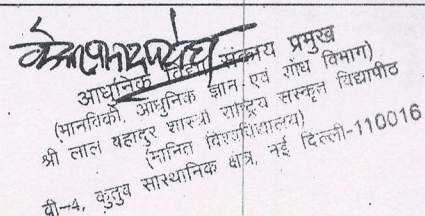 आधुनिक विद्या संकाय प्रमुख
(मानविकी, आधुनिक ज्ञान एवं शोध विभाग)
श्री लाल बहादुर शास्त्री राष्ट्रिय संस्कृत विद्यापीठ
(मानित विश्वविद्यालय)
बी-4, कुतुब सांस्थानिक क्षेत्र, नई दिल्ली-110016